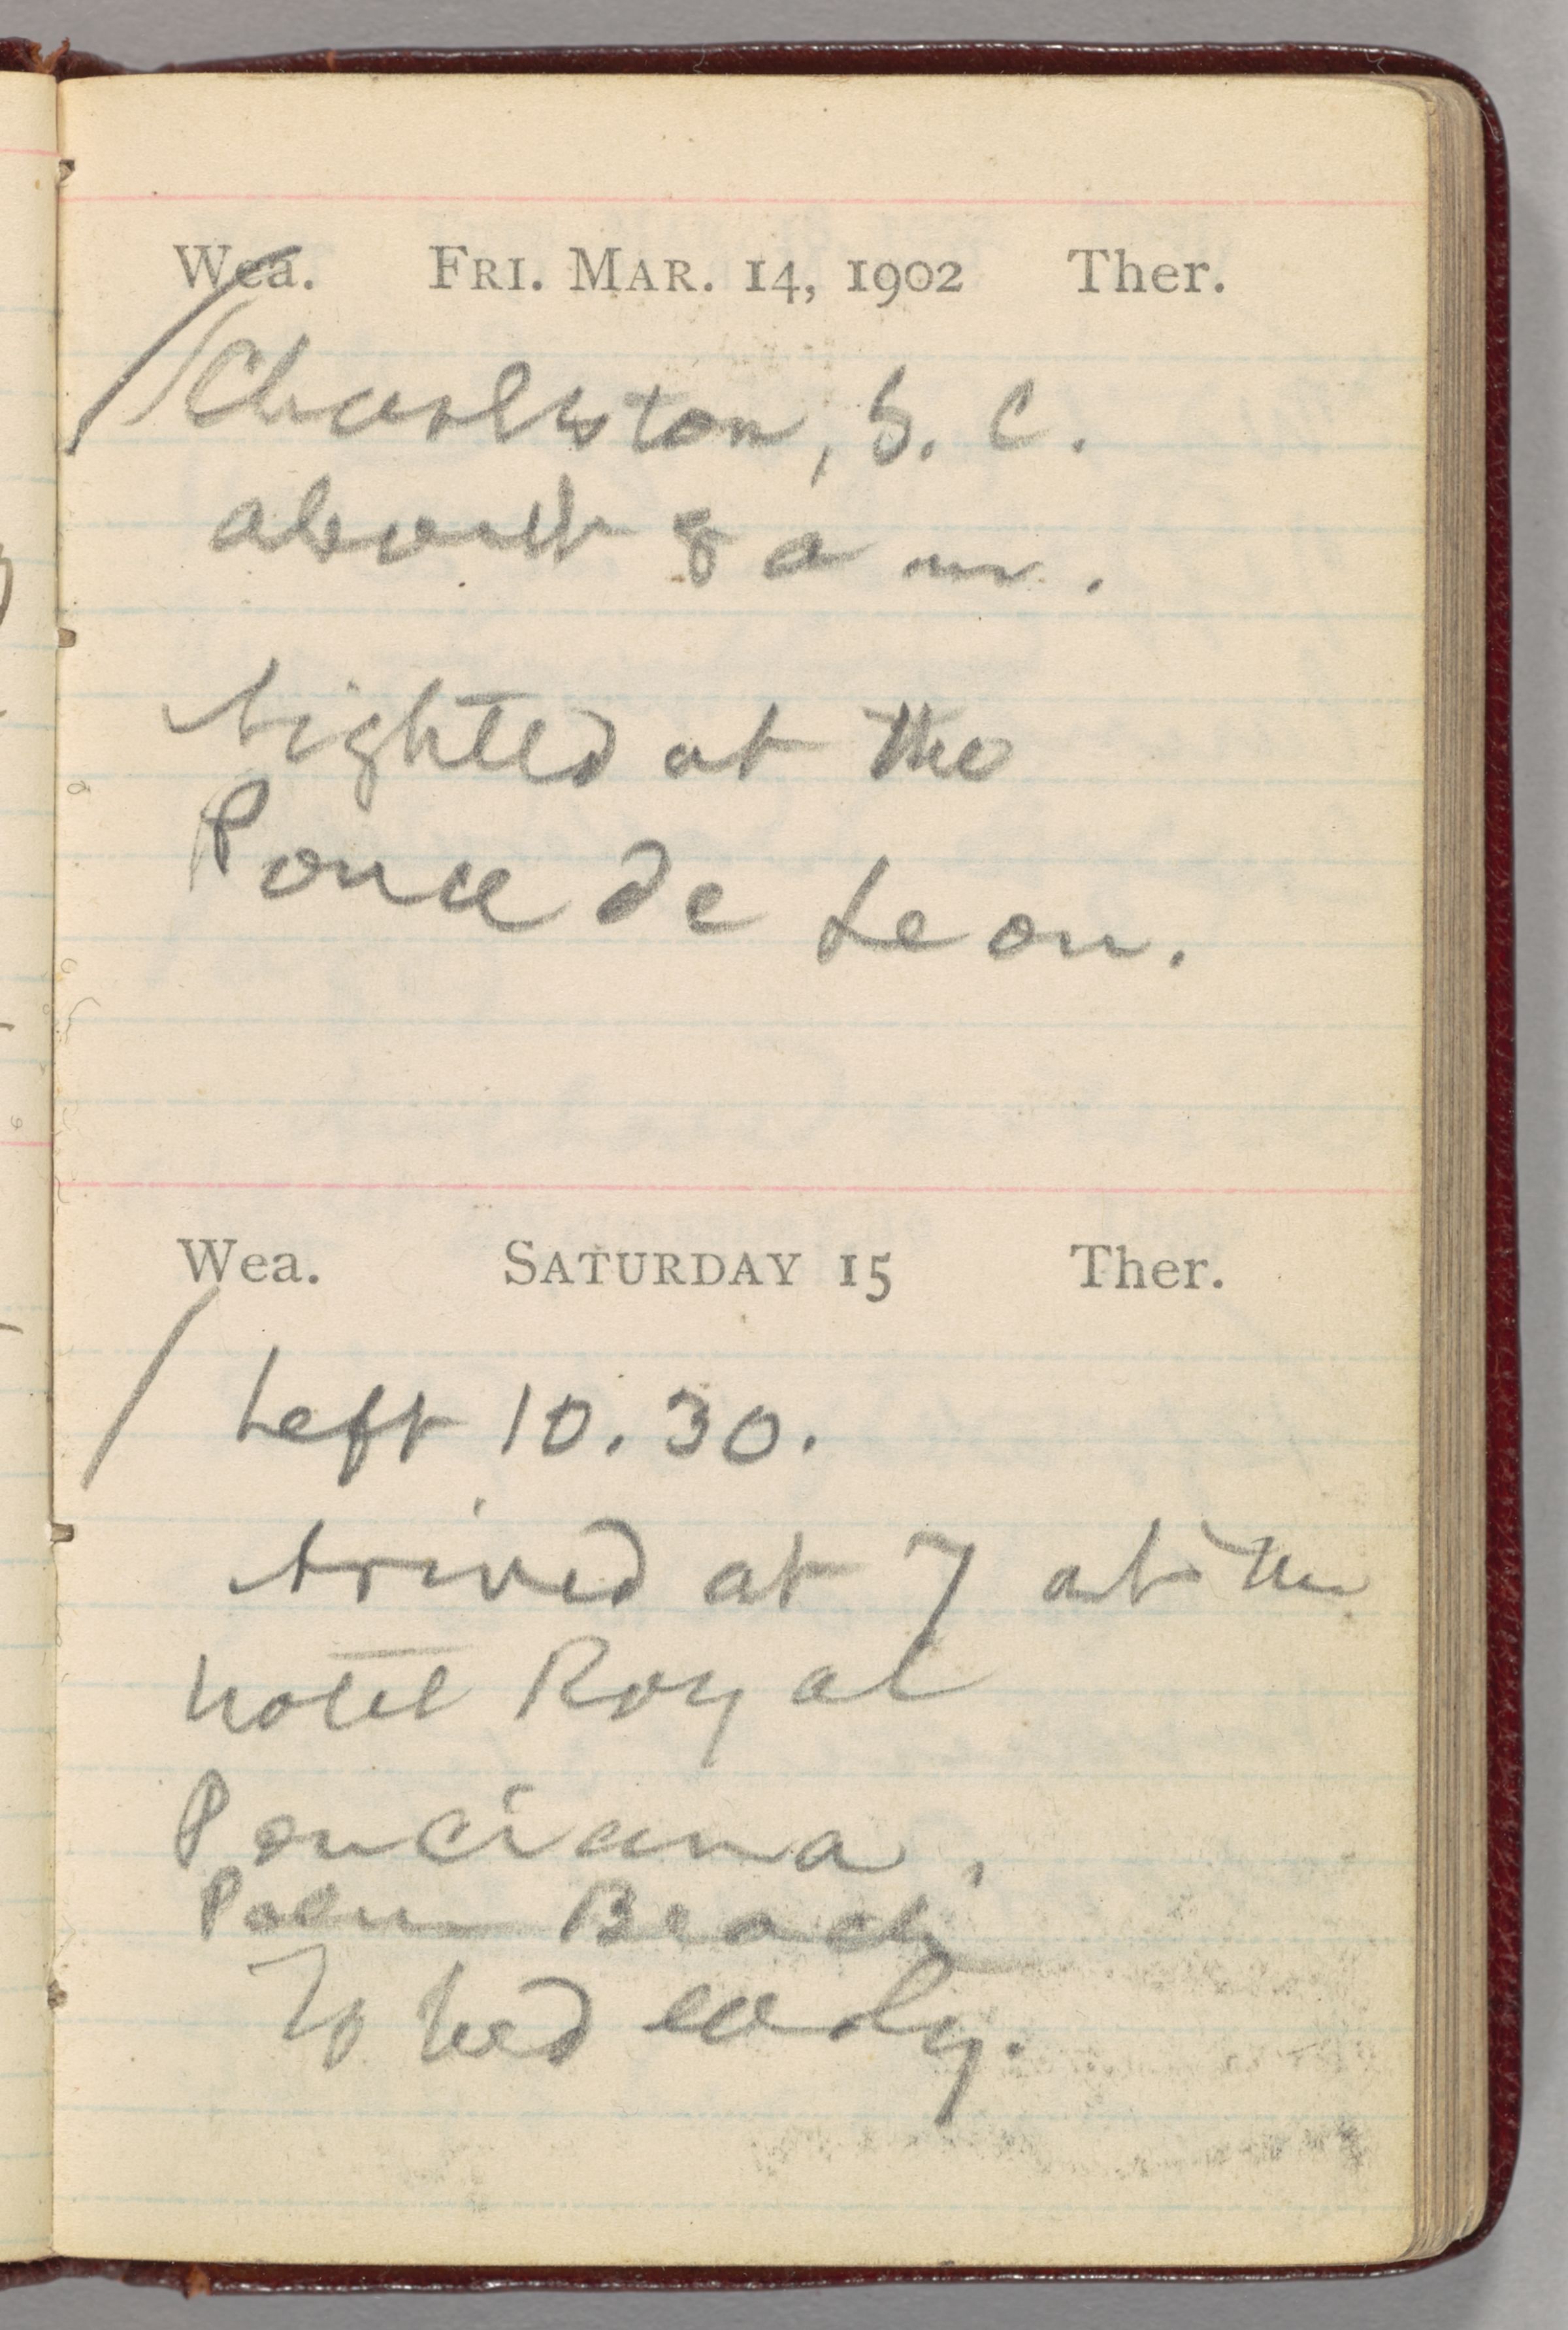 Wea. FRI. MAR. 14, 1902 Ther.
Charleston, S. C.
about 8 a m.
Alighted at the
Ponce de Leon.
Wea. SATURDAY 15 Ther.
Left 10.30.
Arived at 7 at the
Hotel Royal
Ponciana.
Palm Beach
To bed early.